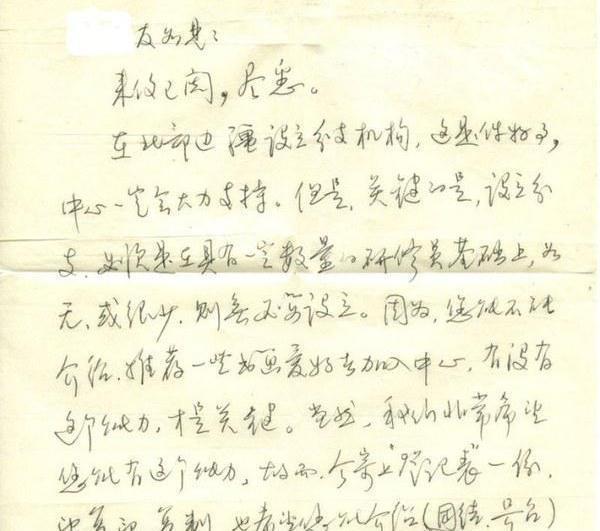 友如兄：
来信已阅，尽悉。
在北部边疆设立分支机构，这是件好事，
中心一定会大力支持。但是，关键的是，设立分
支，必须是在具有一定数量的研修员基础上，如
无、或很少，则无必要设立。因为，您能不能
介绍、推荐一些书画爱好者加入中心，有没有
这个能力，才是关键。当然，我们非常希望
您能有这个能力，故而，今寄上“登记表”一份，